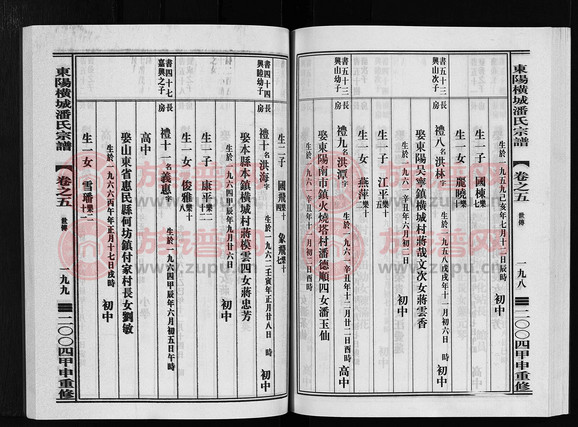 東陽橫城潘氏宗譜
卷之五
世傳
一九八
二〇〇四甲申重修
書五十三
興山次子
長房
禮八
名洪林字
生於一九五八戊戌年十一月初六日 時
初中
娶東陽吳寧鎮橫城村蔣哉文次女蔣雲香
生於一九五九己亥年七月十二日辰時
生一子
國棟樂七
生一女
麗曉樂十
書五十三
興山幼子
長房
禮九
名洪潭字
生於一九六一辛丑年十二月廿二日酉時
高中
娶東陽南市鎮大燒塔村潘德順四女潘玉仙
生於一九六一辛丑年十一月初三日酉時
生一子
江平樂十
生一女
燕萍樂十
書四十四
興睦幼子
長房
禮十
名洪海字
生於一九六二壬寅年正月廿八日 時
初中
娶本縣本鎮橫城村蔣模雲四女蔣忠芳
生於一九六四甲辰年九月廿六日
生二子
國飛
象飛
書四十七
嘉興之子
長房
禮十一
名義惠
生於一九六四甲辰年六月初五日午時
高中
娶山東省惠民縣何坊鎮付家村長女劉敏
生於一九六六丙午年正月十七日戌時
初中
生一子
康平
生一女
俊雅
生一女
雪璠
東陽橫城潘氏宗譜
卷之五
世傳
一九九
二〇〇四甲申重修
族譜网
www.zupu.cn